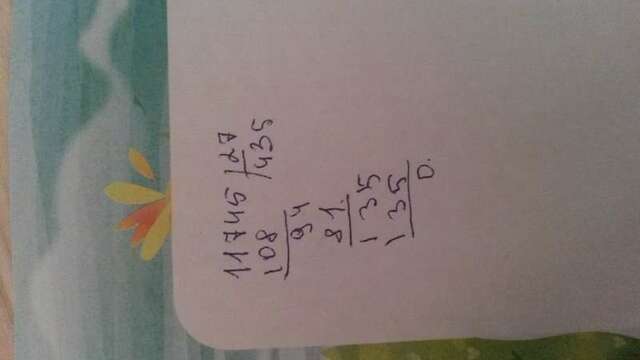 11745 27
108 435
94
81.
135
135
0.